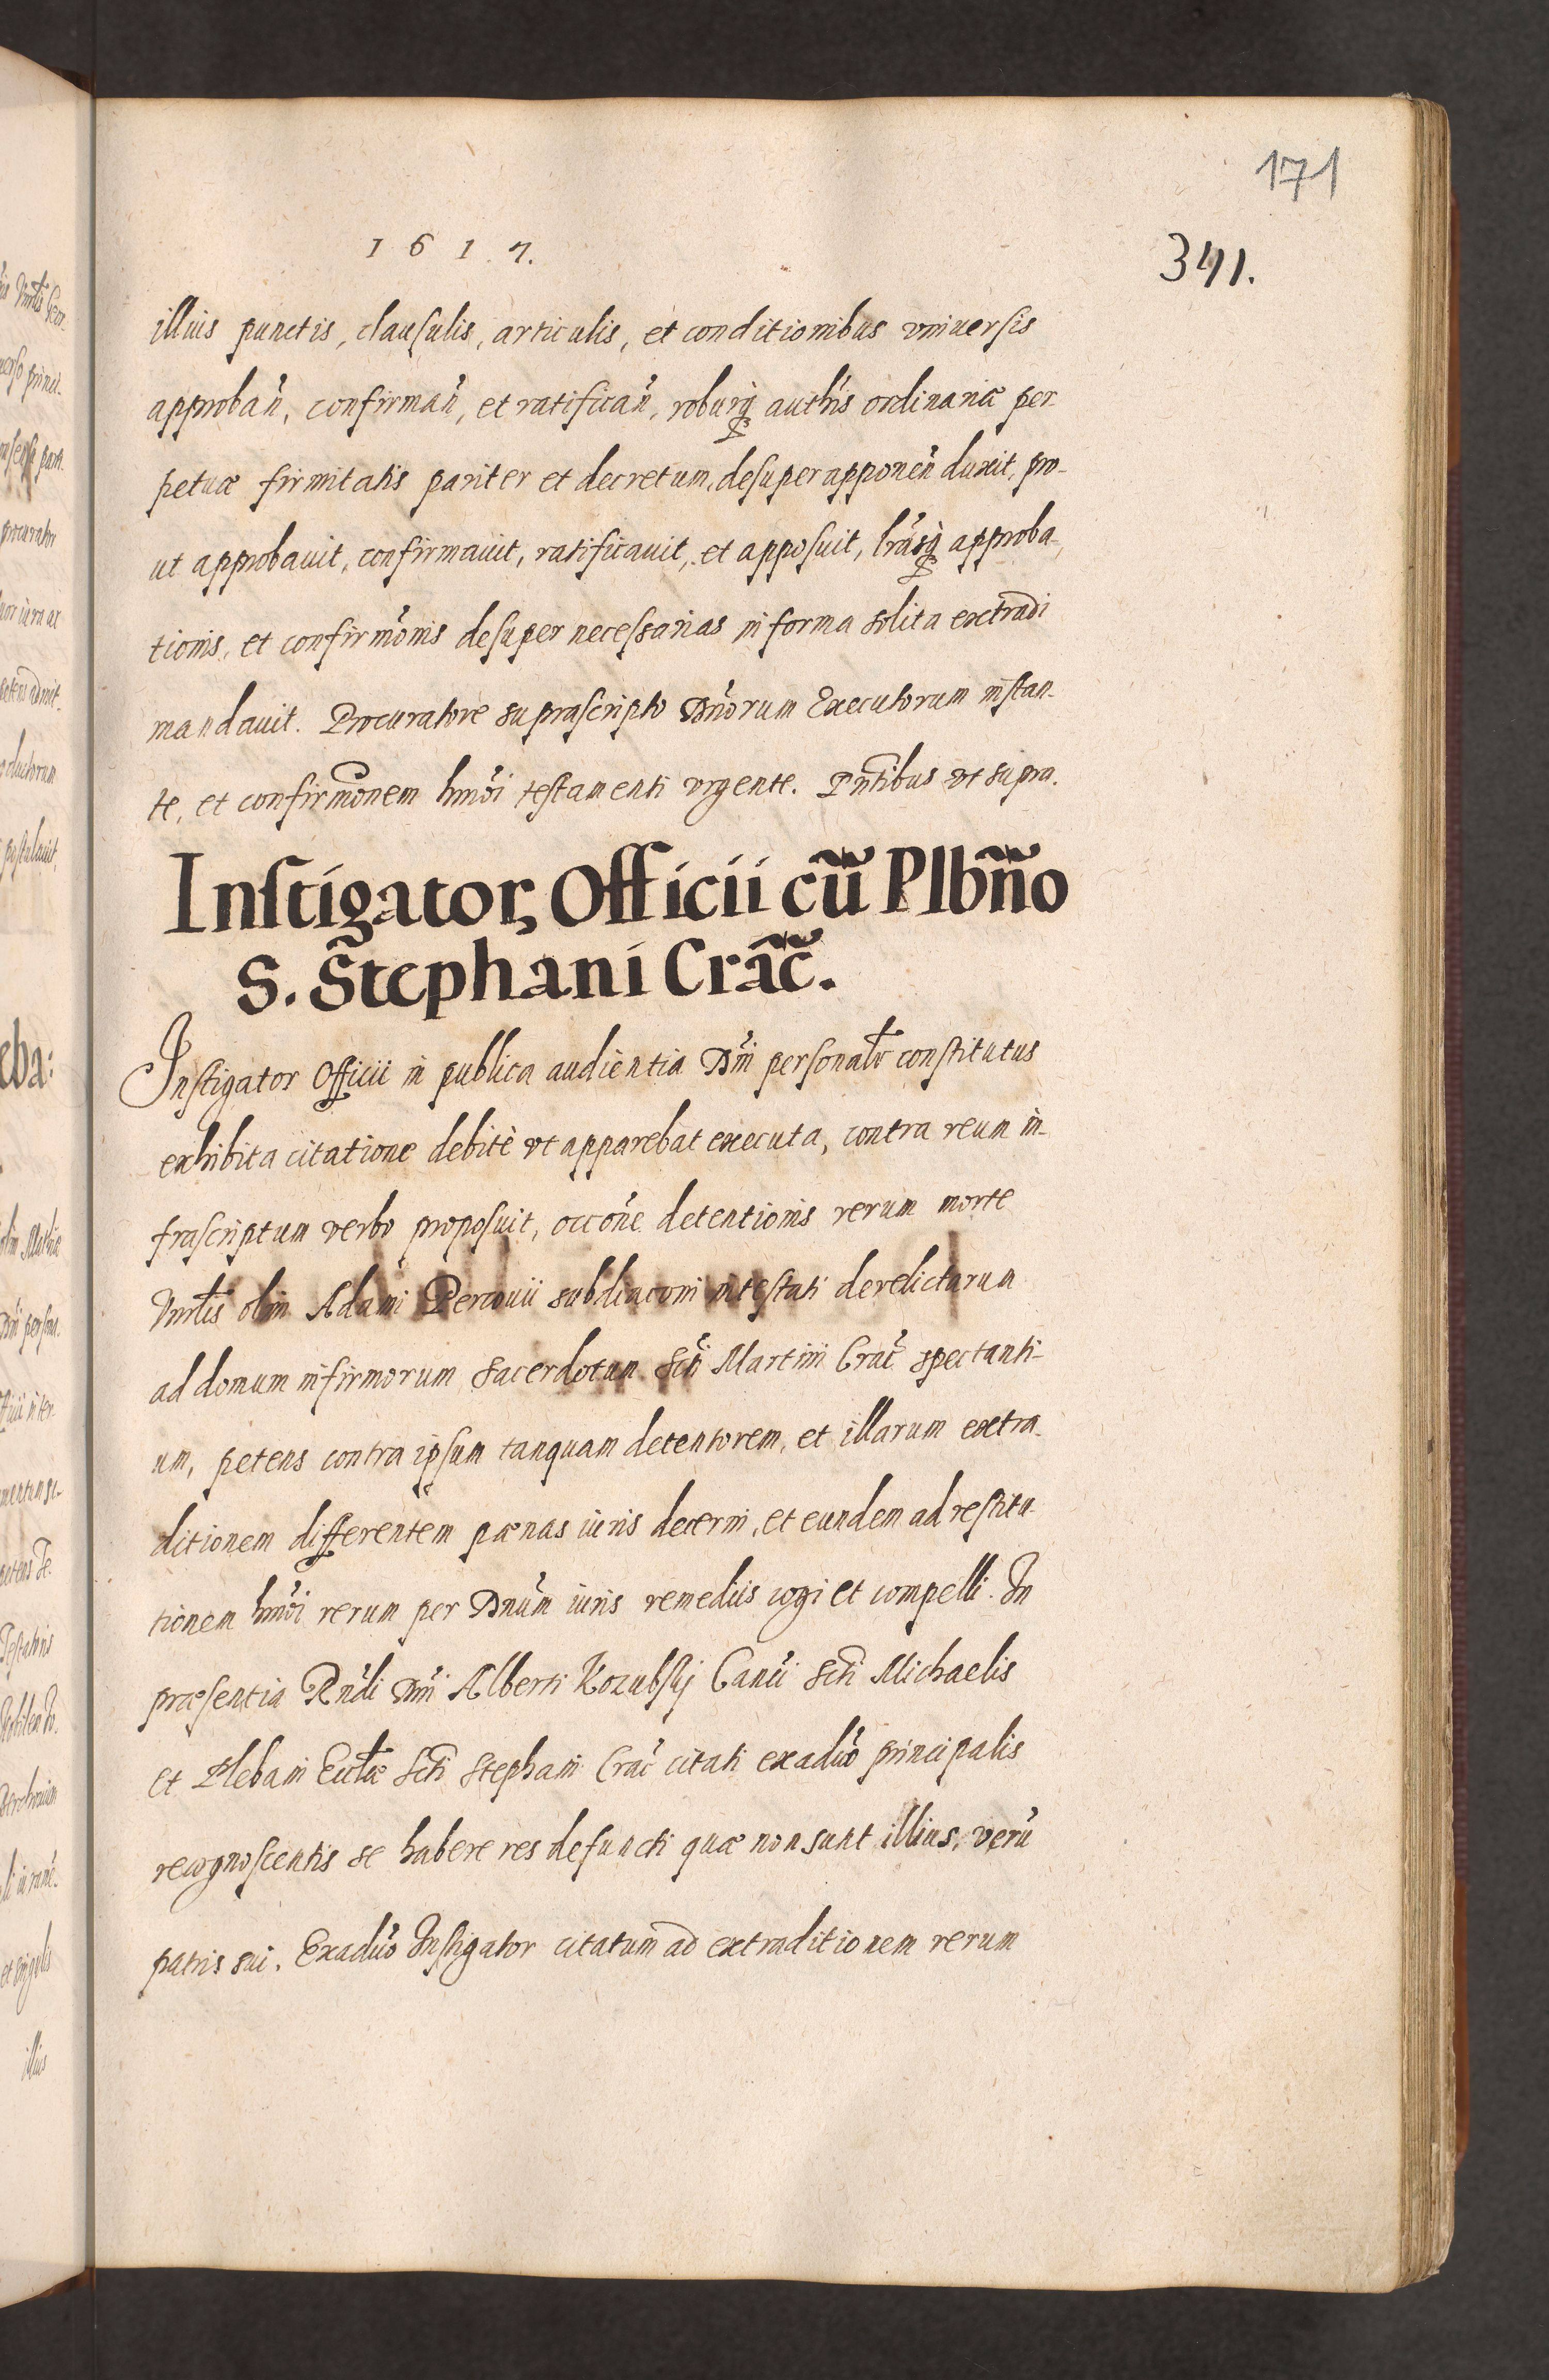 171
1617.
341.
illius punctis, clausulis, articulis, et conditionibus vniuersis
approbañ, confirmañ, et ratificañ, roburq́ authis ordinariæ per-
petuæ firmitatis pariter et decretum, desuper apponeñ duxit, pro-
ut approbauit, confirmauit, ratificauit, et apposuit, lrãsq́ approba-
tionis, et confirmõnis desuper necessarias in forma solita extradi
mandauit. Procuratore suprascripto Dñorum Executorum instan-
te, et confirmõnem hmõi testamenti vrgente. Pñtibus vt supra.
Instigator Officii cũ Plbñno
S. Stephani Crac̃.
Instigator Officii in publica audientia Dñi personalr constitutus
exhibita citatione debitè vt apparebat executa, contra reum in-
frascriptum verbo proposuit, occõne detentionis rerum morte
Vnrlis olim Adami Percouii subdiaconi intestati derelictarum
ad domum infirmorum sacerdotum Scti Martini Crac̃ spectanti-
um, petens contra ipsum tanquam detentorem, et illarum extra-
ditionem differentem pænas iuris decerni, et eundem ad restitu-
tionem hmõi rerum per Dñum iuris remediis cogi et compelli. In
præsentia Rñdi Dñi Alberti Kozubskj Canci Scti Michaelis
et Plebani Ecclæ Scti Stephani Crac̃ citati exaduõ principalis
recognoscentis se habere res defuncti quæ non sunt illius, verũ
patris sui. Exaduõ Instigator citatum ad extraditionem rerum